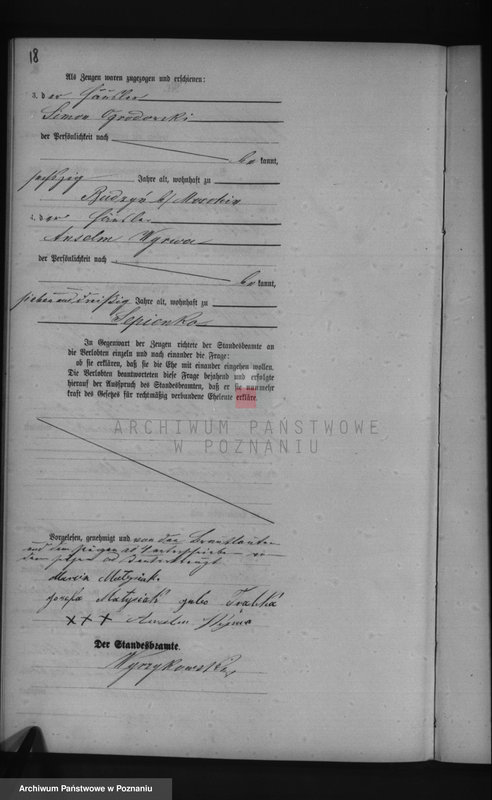 18
Als Zeugen waren zugezogen und erschienen:
3. der Häusler
Simon Ogrodowski
der Persönlichkeit nach
be kannt,
sechszig Jahre alt, wohnhaft zu
Budzyń b/ Moschin
4. der Häusler
Anselm Wyrwa
der Persönlichkeit nach
be kannt,
sieben und dreißig Jahre alt, wohnhaft zu
In Gegenwart der Zeugen richtete der Standesbeamte an
die Verlobten einzeln und nach einander die Frage:
ob sie erklären, daß sie die Ehe mit einander eingehen wollen.
Die Verlobten beantworteten diese Frage bejahend und erfolgte
hierauf der Ausspruch des Standesbeamten, daß er sie nunmehr
kraft des Gesetzes für rechtmäßig verbundene Eheleute erkläre.
ARCHIWUM PAŃSTWOWE
W POZNANIU
Vorgelesen, genehmigt und von den Brautleuten
und dem Zeugen ad 4 unterschrieben
Matysiak
Józefa Matysiak gebo
+++ Anselm
Der Standesbeamte.
Wyrzykowski
Archiwum Państwowe w Poznaniu